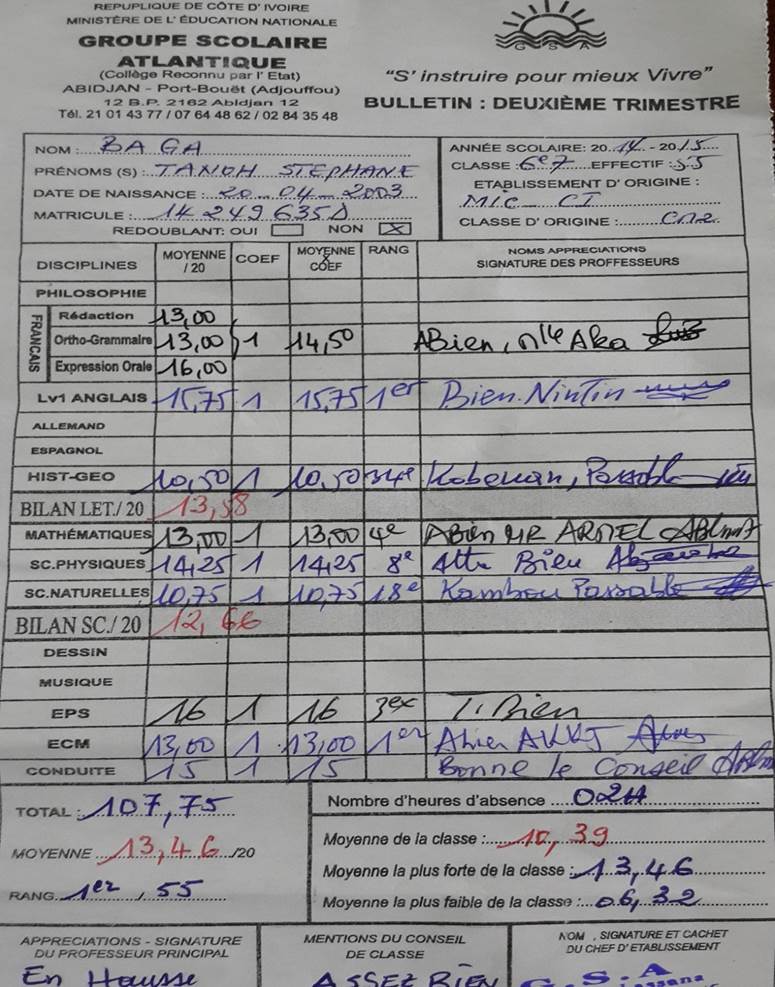 REPUPLIQUE DE CÔTE D' IVOIRE
MINISTÈRE DE L' ÉDUCATION NATIONALE
GROUPE SCOLAIRE
ATLANTIQUE
(Collège Reconnu par l' Etat)
ABIDJAN - Port-Bouët (Adjouffou)
12 B.P. 2162 Abidjan 12
Tél. 21 01 43 77 / 07 64 48 62 / 02 84 35 48
G S A
“S' instruire pour mieux Vivre”
BULLETIN : DEUXIÈME TRIMESTRE
NOM : BAGA
PRÉNOMS (S) : TANOH STEPHANE
DATE DE NAISSANCE : 20-04-2003
MATRICULE : 14249635
REDOUBLANT: OUI NON X
ANNÉE SCOLAIRE: 2014 - 2015
CLASSE : 6e7 EFFECTIF : 55
ETABLISSEMENT D' ORIGINE :
MIC-CI
CLASSE D' ORIGINE : CM2
DISCIPLINES MOYENNE / 20 COEF MOYENNE X COEF RANG NOMS APPRECIATIONS SIGNATURE DES PROFFESSEURS
PHILOSOPHIE
FRANCAIS
Rédaction 13,00
Ortho-Grammaire 13,00 1 14,50 ABien, Mlle Aka
Expression Orale 16,00
LV1 ANGLAIS 15,75 1 15,75 1er Bien. Nintin
ALLEMAND
ESPAGNOL
HIST-GEO 10,50 1 10,50 34e Passable
BILAN LET./ 20 13,58
MATHÉMATIQUES 13,00 1 13,00 4e ABien MR ARMEL
SC.PHYSIQUES 14,25 1 14,25 8e Bien
SC.NATURELLES 10,75 1 10,75 18e Kambou Passable
BILAN SC./ 20 12,66
DESSIN
MUSIQUE
EPS 16 1 16 3ex T. Bien
ECM 13,00 1 13,00 1er
CONDUITE 15 1 15 Bonne le Conseil
TOTAL : 107,75
MOYENNE 13,46 /20
RANG 1er / 55
Nombre d'heures d'absence 02H
Moyenne de la classe : 10,39
Moyenne la plus forte de la classe : 13,46
Moyenne la plus faible de la classe : 06,32
APPRECIATIONS - SIGNATURE
DU PROFESSEUR PRINCIPAL
En Hausse
MENTIONS DU CONSEIL
DE CLASSE
ASSEZ BIEN
NOM , SIGNATURE ET CACHET
DU CHEF D' ETABLISSEMENT
G.S.A